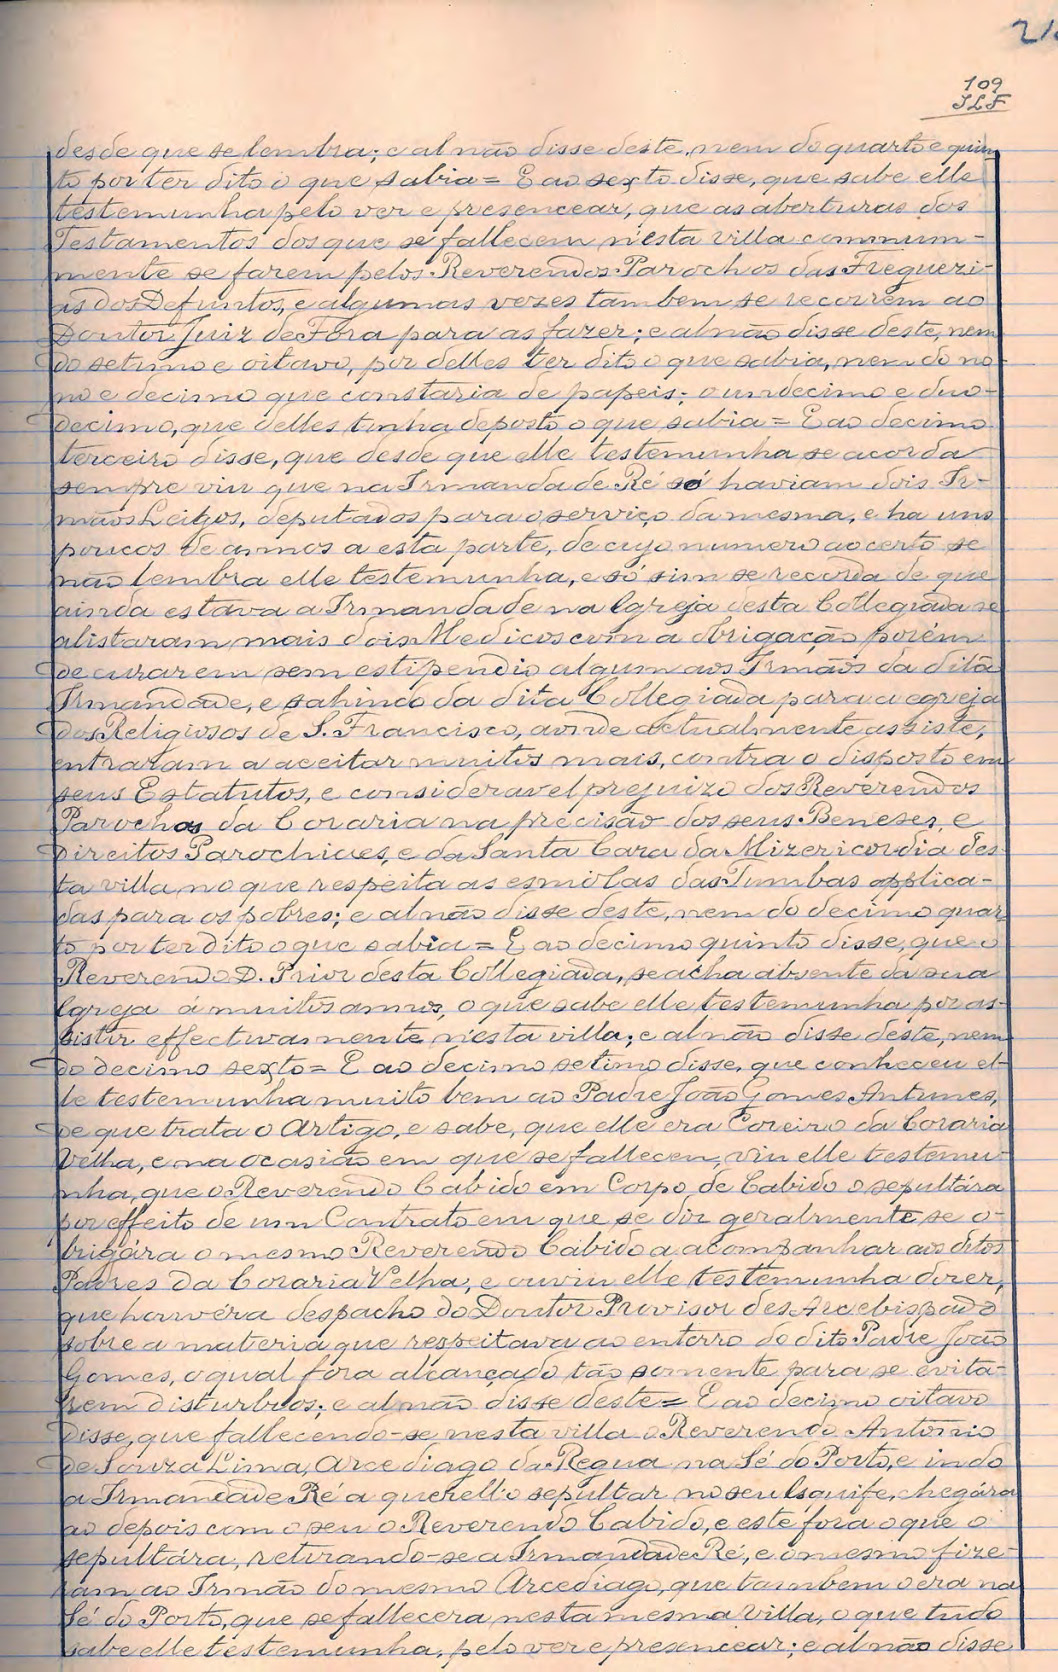 109
JLF
desde que se lembra; e al não disse deste, nem do quarto e quin-
to por ter dito o que sabia = E ao sexto disse, que sabe elle
testemunha pelo ver e presencear, que as aberturas dos
Testamentos dos que se fallecem n'esta villa commum-
mente se farem pelos Reverendos Parochos das Fregueri-
as dos Defuntos, e algumas vezes tambem se recorrem ao
Doutor Juiz de Fóra para as fazer; e al não disse deste, nem
do setimo e oitavo, por delles ter dito o que sabia, nem do no-
no e decimo que constaria de papeis; o undecimo e duo-
decimo, que delles tinha deposto o que sabia = E ao decimo
terceiro disse, que desde que elle testemunha se acorda
sempre viu que na Irmandade Ré só haviam dois Ir-
mãos Leigos, deputados para o serviço da mesma, e ha uns
poucos de annos a esta parte, de cujo numero ao certo se
não lembra elle testemunha, e só sim se recorda de que
ainda estava a Irmandade na Igreja desta Collegiada se
alistaram mais dois Medicos com a obrigação porém
de curarem sem estipendio algum aos Irmãos da dita
Irmandade, e sahindo da dita Collegiada para a egreja
dos Religiosos de S. Francisco, aonde actualmente assiste,
entraram a aceitar muitos mais, contra o disposto em
seus Estatutos, e consideravel prejuizo dos Reverendos
Parochos da Coraria na precisão dos seus Beneses, e
Direitos Parochiaes, e da Santa Cara da Mizericordia des-
ta villa, no que respeita as esmolas das Tumbas applica-
das para os pobres; e al não disse deste, nem do decimo quar-
to por ter dito o que sabia = E ao decimo quinto disse, que o
Reverendo D. Prior desta Collegiada, se acha absente da sua
Igreja á muitos annos, o que sabe elle testemunha por as-
sistir effectivamente n'esta villa; e al não disse deste, nem
do decimo sexto = E ao decimo setimo disse, que conheceu el-
le testemunha muito bem ao Padre João Gomes Antunes,
de que trata o Artigo, e sabe, que elle era Coreiro da Coraria
Velha, e na ocasião em que se falleceu, viu elle testemu-
nha, que o Reverendo Cabido em Corpo de Cabido o sepultára
por effeito de um Contrato em que se dir geralmente, se o-
brigára o mesmo Reverendo Cabido a acompanhar aos ditos
Padres da Coraria Velha; e ouviu elle testemunha dorer,
que houvéra despacho do Doutor Provisor des Arcebispado
sobre a materia que respeitava ao enterro do dito Padre João
Gomes, o qual fôra alcançado tão somente para se evita-
rem disturbios; e al não disse deste = E ao decimo oitavo
disse, que fallecendo-se nesta villa o Reverendo Antonio
de Souza Lima, Arcediago da Regua na Sé do Porto, e indo
a Irmandade Ré a querell'o sepultar no seu Esquife, chegára
ao depois com o seu o Reverendo Cabido, e este fora o que o
sepultára, retirando-se a Irmandade Ré, e o mesmo fize-
ram ao Irmão do mesmo Arcediago, que tambem o era na
Sé do Porto, que se fallecera nesta mesma Villa, o que tudo
sabe elle testemunha, pelo ver e presencear; e al não disse